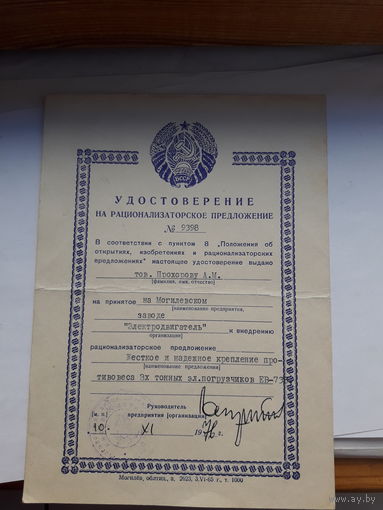 БССР
УДОСТОВЕРЕНИЕ
НА РАЦИОНАЛИЗАТОРСКОЕ ПРЕДЛОЖЕНИЕ
№ 9398
В соответствии с пунктом 8 „Положения об
открытиях, изобретениях и рационализаторских
предложениях" настоящее удостоверение выдано
тов. Прохорову А.М.
[фамилия, имя, отчество]
на принятое на Могилевском
[наименование предприятия,
заводе
"Электродвигатель" к внедрению
организации]
рационализаторское предложение
Жесткое и надежное крепление про-
[наименование предложения]
тивовеса 3х тонных эл.погрузчиков ЕВ-7
Руководитель
[м. п.] предприятия [организации]
"10" XI 1976 г.
Могилёв, облтип., з. 2623, 3.VI-65 г., т. 1000
ay.by